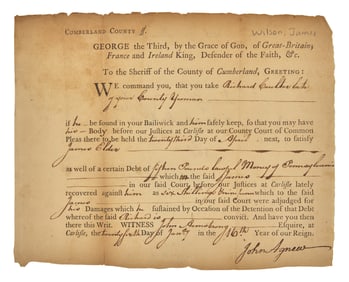 Wilson, James
CUMBERLAND COUNTY ss.
GEORGE the Third, by the Grace of GOD, of Great-Britain,
France and Ireland King, Defender of the Faith, &c.
To the Sheriff of the County of Cumberland, GREETING:
WE command you, that you take Richard Coulter late
of your County Yeoman
if he be found in your Bailiwick and him safely keep, so that you may have
his Body before our Justices at Carlisle at our County Court of Common
Pleas there to be held the twenty third Day of April next, to satisfy
James Elder
as well of a certain Debt of fifteen Pounds lawful Money of Pennsylvania
which the said James
in our said Court, before our Justices at Carlisle lately
recovered against him as which to the said
James in our said Court were adjudged for
his Damages which he sustained by Occasion of the Detention of that Debt
whereof the said Richard is convict. And have you then
there this Writ. WITNESS John Armstrong Esquire, at
Carlisle, the Day of Janry in the 16th Year of our Reign.
John Agnew